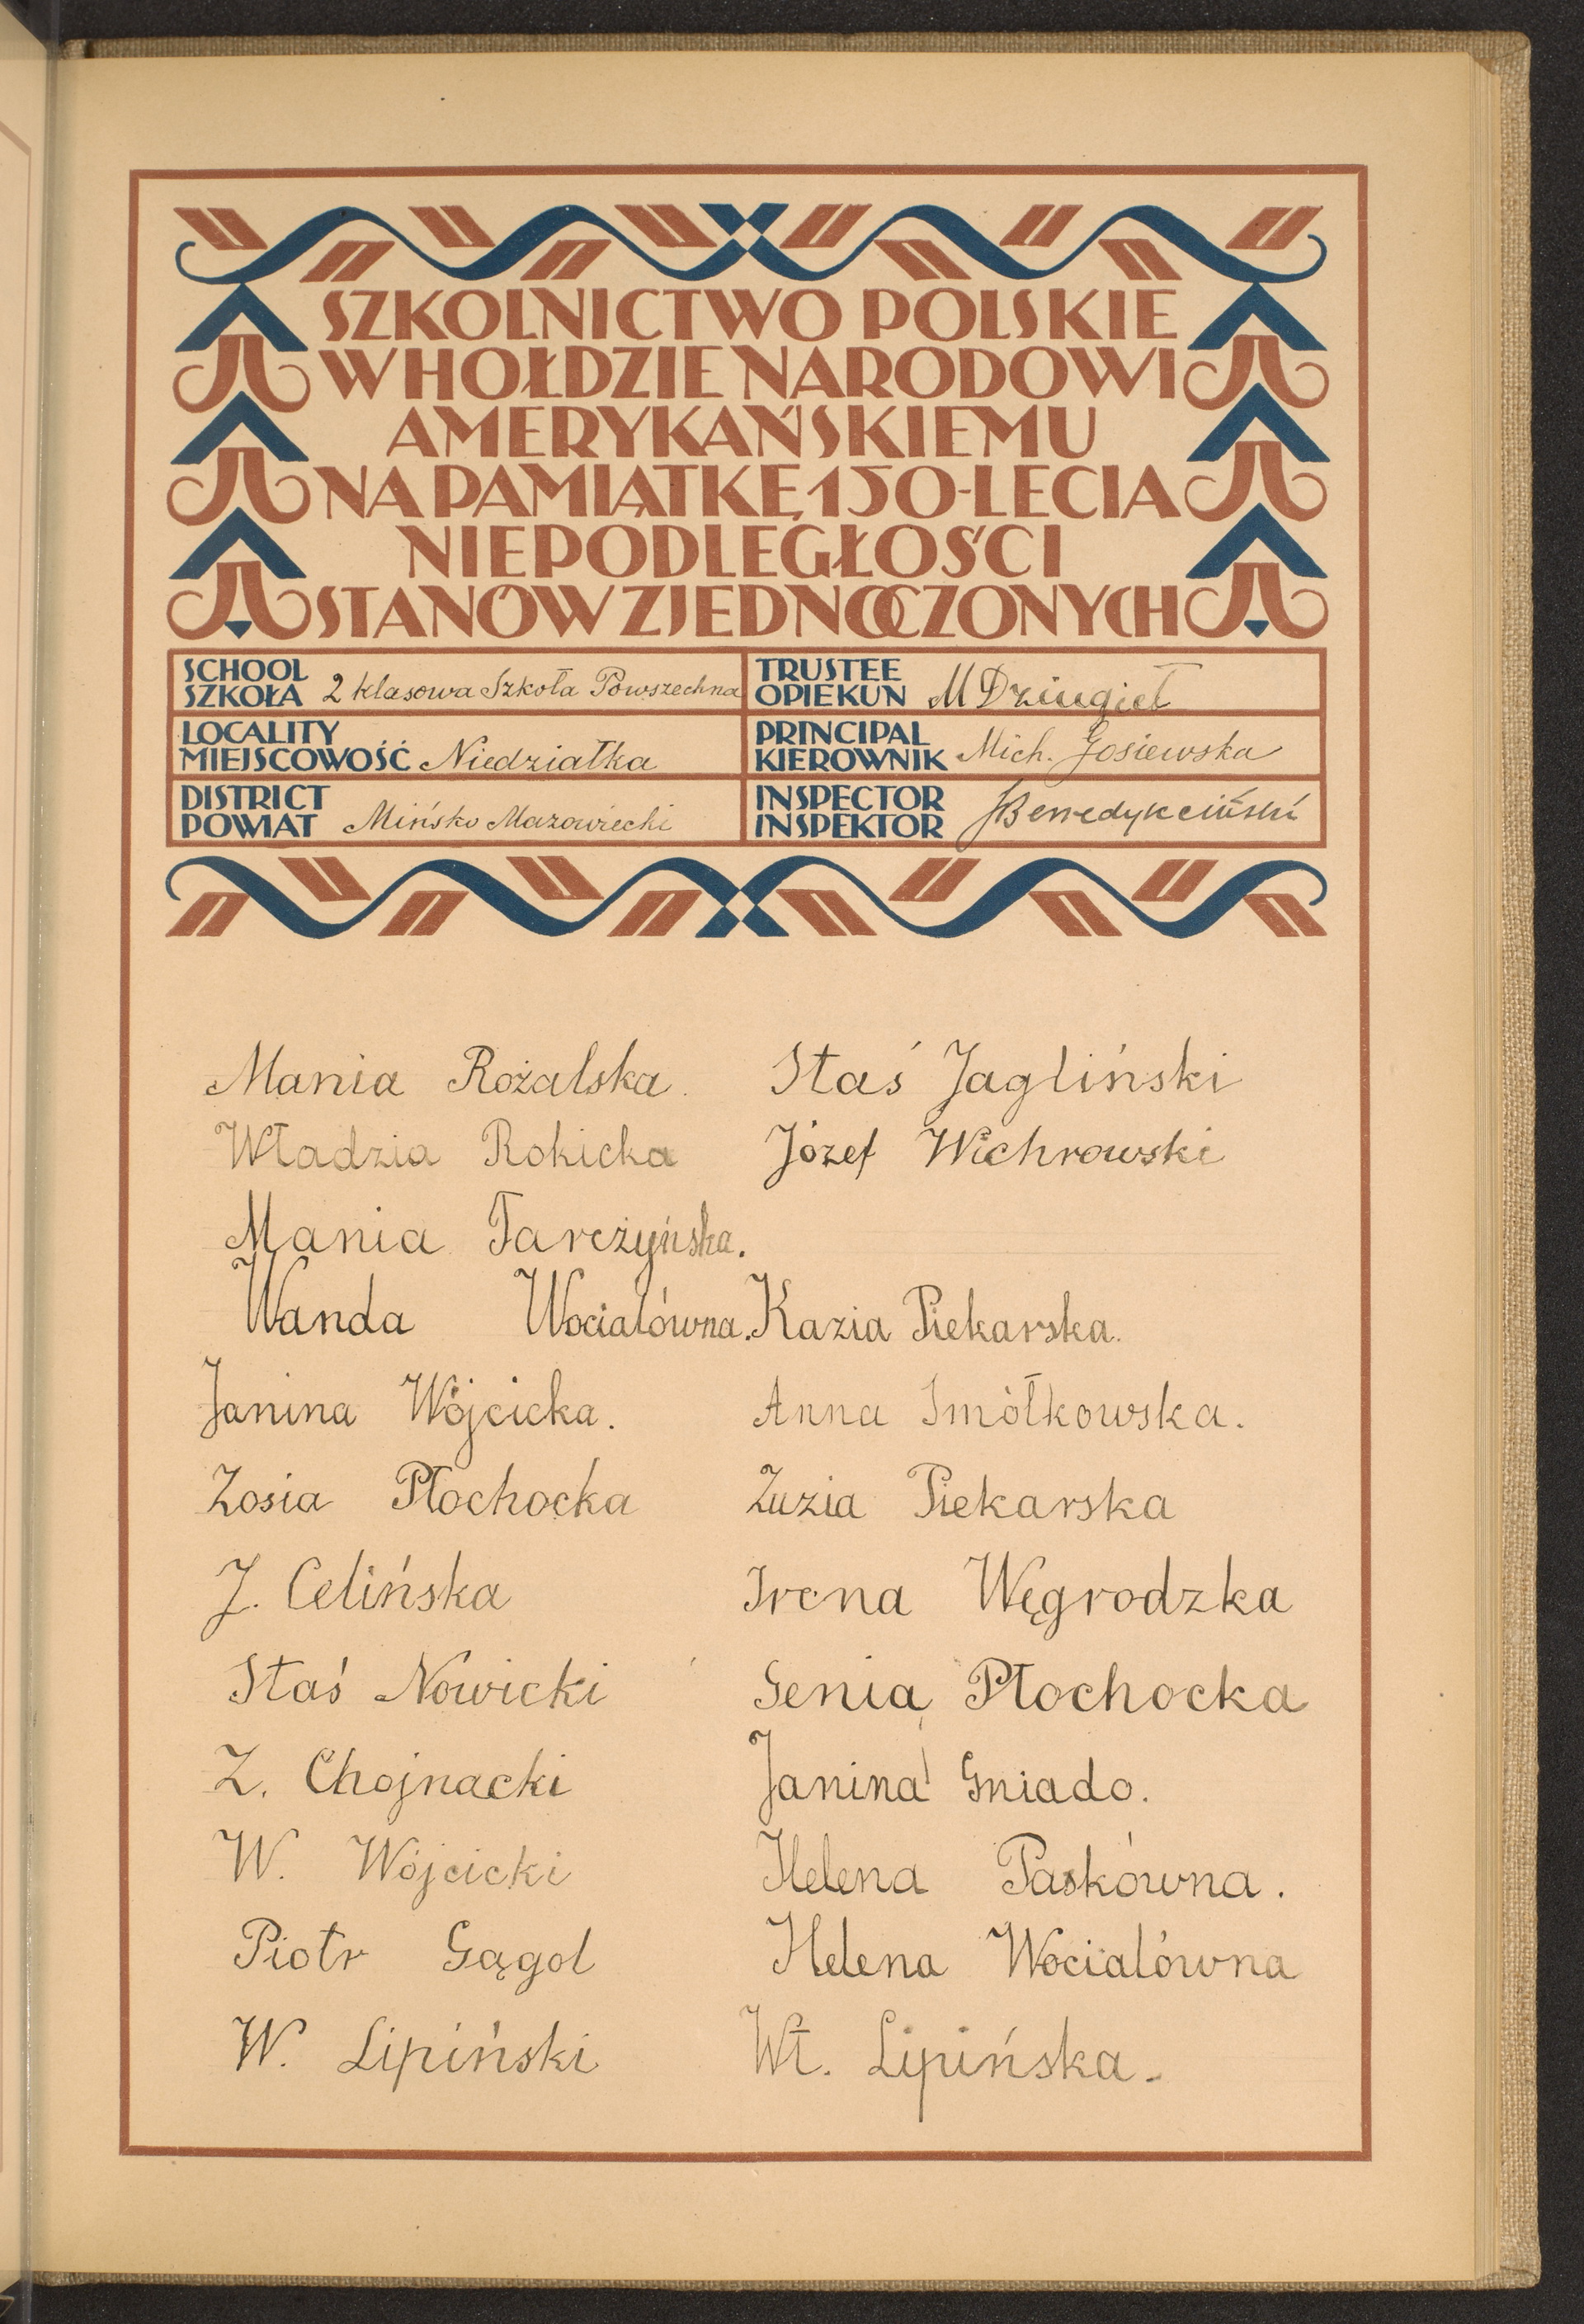 SZKOLNICTWO POLSKIE
W HOŁDZIE NARODOWI
AMERYKAŃSKIEMU
NA PAMIĄTKĘ 150-LECIA
NIEPODLEGŁOŚCI
STANÓW ZJEDNOCZONYCH
SCHOOL
SZKOŁA 2 klasowa Szkoła Powszechna
TRUSTEE
OPIEKUN M Dziugieł
LOCALITY
MIEJSCOWOŚĆ Niedziałka
PRINCIPAL
KIEROWNIK Mich. Gosiewska
DISTRICT
POWIAT Mińsko Mazowiecki
INSPECTOR
INSPEKTOR JBenedykciński
Mania Rożalska. Staś Jagliński
Władzia Rokicka Józef Wichrowski
Mania Tarczyńska.
Wanda Wocialówna. Kazia Piekarska.
Janina Wójcicka. Anna Smółkowska.
Zosia Płochocka Zuzia Piekarska
J. Celińska Irena Węgrodzka
Staś Nowicki Genia Płochocka
Z. Chojnacki Janina Gniado.
W. Wójcicki Helena Paskówna.
Piotr Gągol Helena Wocialówna
W. Lipiński Wł. Lipińska.